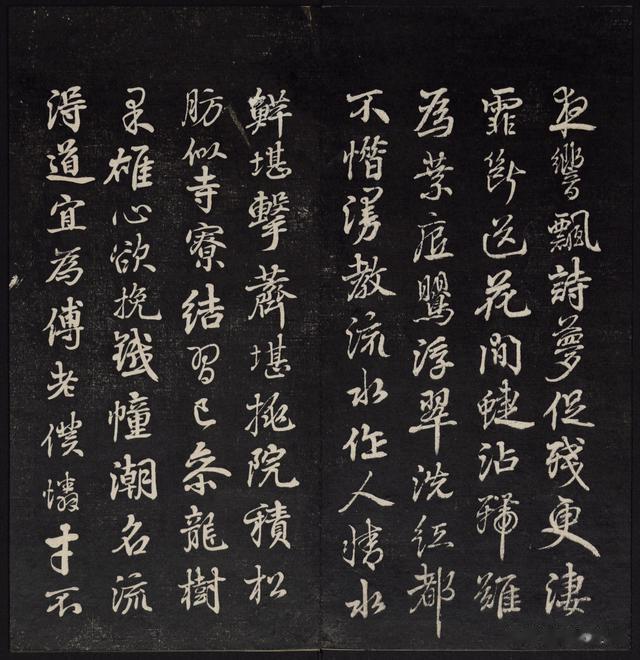 夜響飄詩夢促殘更淒
霏斷送花間蜨沾殢雖
為葉底鸎浮翠洗紅都
不惜漫教流水作人情水
鮮堪擊薺堪挑院積松
肪似寺寮結習已参龍樹
果雄心欲挽鐵幢潮名流
得道宜為傅老僕憐才不